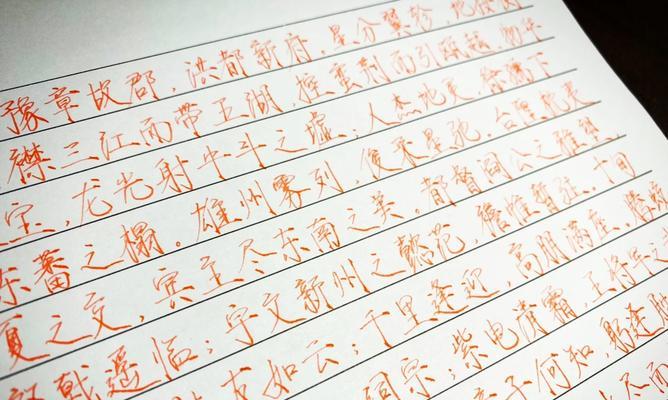 豫章故郡，洪都新府。星分翼轸，地
襟三江而带五湖，控蛮荆而引瓯越。物华
宝，龙光射牛斗之墟；人杰地灵，徐孺下
之榻。雄州雾列，俊采星驰。台隍枕夷
夏之交，宾主尽东南之美。都督阎公之雅望
棨戟遥临；宇文新州之懿范，襜帷暂驻。十旬
友如云；千里逢迎，高朋满座。腾蛟
词宗；紫电清霜，王将军之
子何知，躬逢